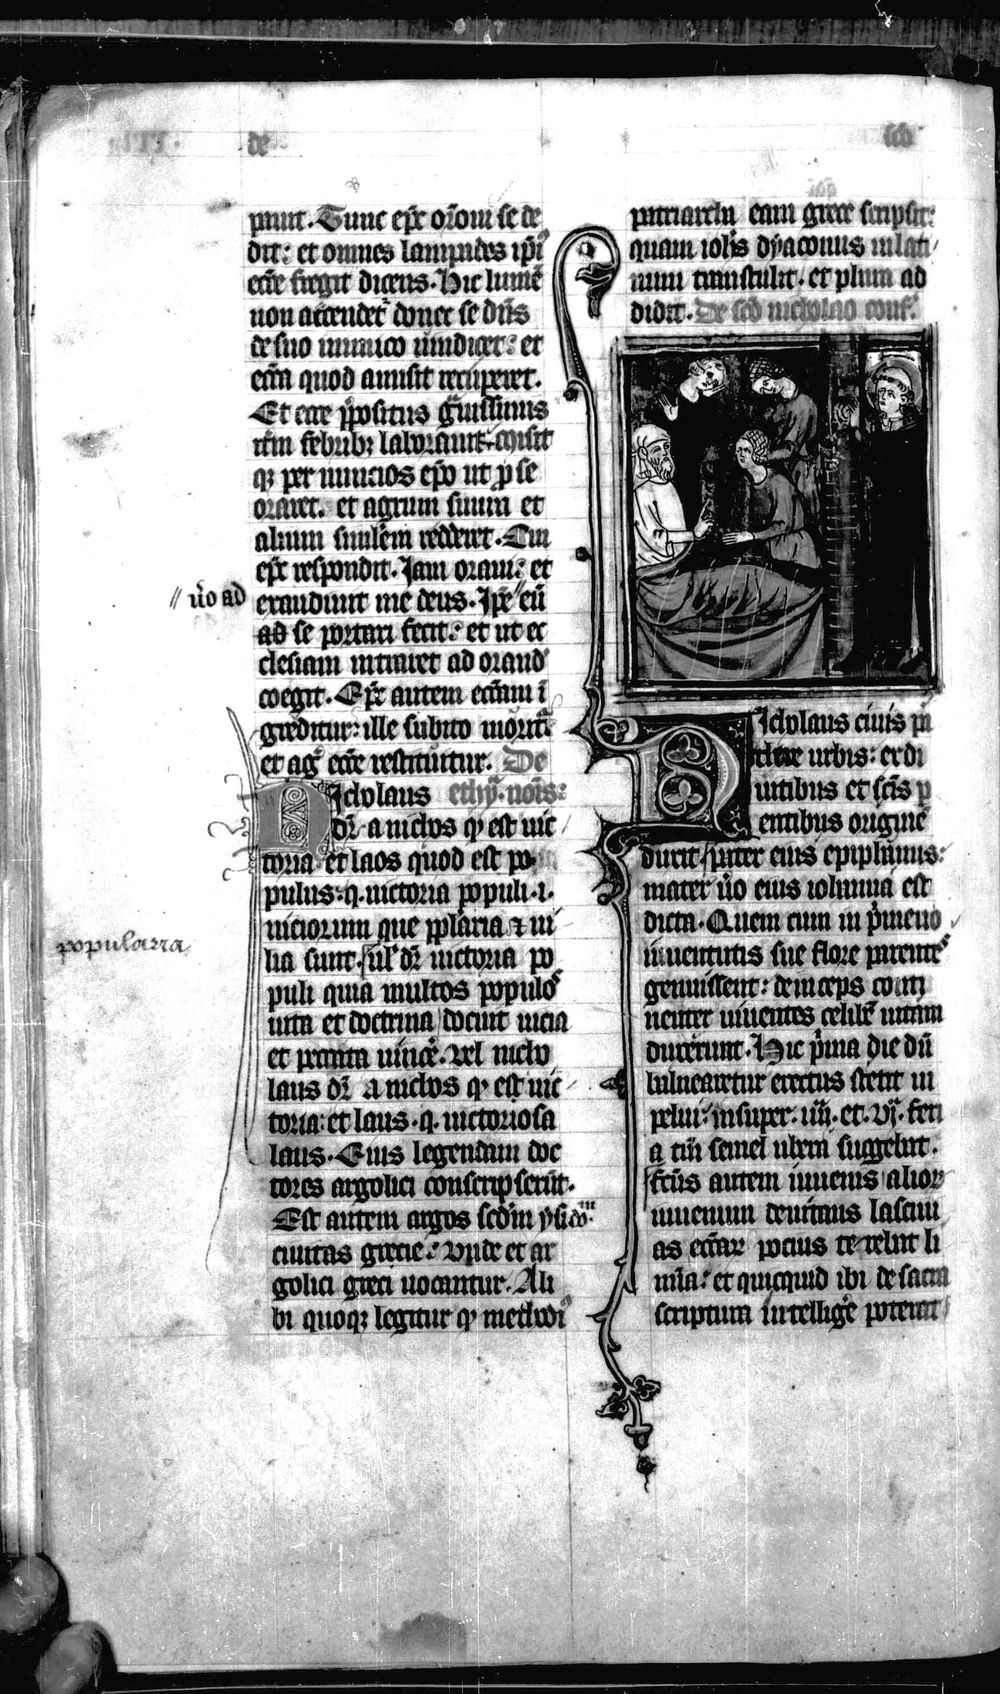 de
scō
punt. Tunc ep̄c or̄oni se de
dit: et omnes lampades ip̄i9
ecc̄e fregit dicens. Hic lumē
non accendet᷑ donec se dn̄s
de suo inimico uindicet: et
ecc̄ia quod amisit recuperet.
Et ecce p̄positus g̃uissimis
febribꝫ laborauit. Misit
qꝫ per nuncios ep̄o ut ꝓ se
oraret. et agrum suum et
alium similem redderet. Cui
ep̄c respondit. Jam oraui: et
exaudiuit me deus. Ip̄e eū
// u̾o ad
ad se portari fecit: et ut ec
clesiam intraret ad orand̾
coegit. Ep̄c autem ecc̄iam ī
greditur: ille subito morit᷑
et ag̾ ecc̄e restituitur. De
Nicholaus ethẏ. nois:
dr̄ a nichos qd̾ est uic
toria et laos quod est po
pulus: q. uictoria populi .i.
uiciorum que pplaria ⁊ ui
popularia
lia sunt. ul̾ dr̄ uictoria po
puli quia multos populos
uita et doctrina docuit uicia
et peccata uince̾. Vel nicho
laus dr̄ a nichos qd̾ est uic
toria: et laus .q. uictoriosa
laus. Eius legendam doc
tores argolici conscripserūt.
Est autem argos scd̾m ysidoꝝ
ciuitas grecie: Vnde et ar
golici greci uocantur. Ali
bi quoqꝫ legitur qd̾ methodi9
patriarcha eam grece scripsit:
quam ioh̾is dẏaconus in lati
num transtulit. et plura ad
didit. De scō nicholao conf.
Nicholaus ciuis pa
there urbis: ex di
uitibus et scīs p
entibus originē
duxit. pater eius epiphanius:
mater u̾o eius iohanna est
dicta. Quem cum in p̾meuo
iuuentutis sue flore parentes
genuissent: deinceps conti
nenter uiuentes celibē uitam
duxerunt. Hic p̾ma die dū
balnearetur erectus stetit in
pelui. insuper .iiij. et .vj. feri
a tm̄ semel ubera suggebat.
Fc̄us autem iuuenis alior̾
iuuenum deuitans lasciui
as ecc̄iar̾ pocius terebat li
mīa: et quicquid ibi de sacra
scriptura intellig̾e poterat